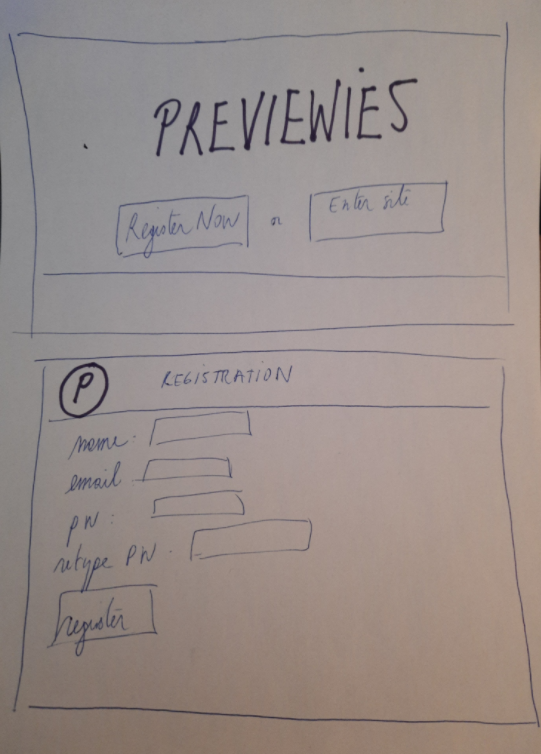 PREVIEWIES
Register Now or Enter site
P REGISTRATION
name:
email
pw:
retype PW.
register